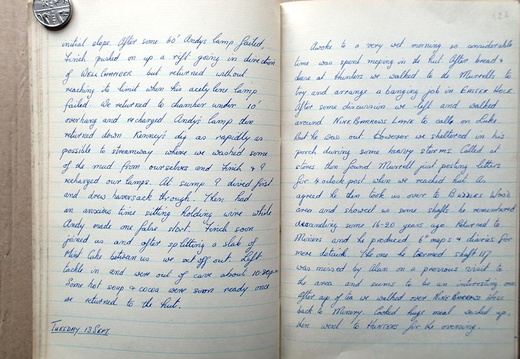 initial slope. After some 60' Andy's lamp failed,
Finch pushed on up a rift going in direction
of WELSHMANGER but returned without
reaching to limit when his acety lene lamp
failed. We returned to chamber under 10'
overhang and recharged Andy's lamp then
returned down Kenney's dig as rapidly as
possible to streamway where we washed some
of the mud from ourselves and Finch & I
recharged our lamps. At sump I dived first
and drew haversack through. Then had
an anxious time sitting holding wire while
Andy made one false start. Finch soon
joined us and after splitting a slab of
Mint Cake between us we set off out. Left
tackle in and were out of cave about 10:30pm
Some hot soup & cocoa were soon ready once
we returned to the hut.
TUESDAY 13 SEPT.
Awoke to a very wet morning so considerable
time was spent moping in the hut. After bread &
cheese at Hunters we walked to the Murrells to
try and arrange a banging job in EASTER HOLE
After some discussion we left and walked
around NINE BARROWS LANE to calls on Luke
But he was out. However we sheltered in his
porch during some heavy storms. Called at
stores then found Murrell just posting letters
for 4 oclock post when we reached hut. As
agreed he then took us over to Wood's
area and showed us some shafts he remembered
descending some 16-20 years ago. Returned to
Miners and he produced 6" maps & diaries for
more details. The one he termed shaft 117
was missed by Alan on a previous visit to
the area and seems to be an interesting one
After cup of tea we walked over NINE BARROWS HILL
back to Minery. Cooked huge meal washed up,
then went to HUNTERS for the evening.